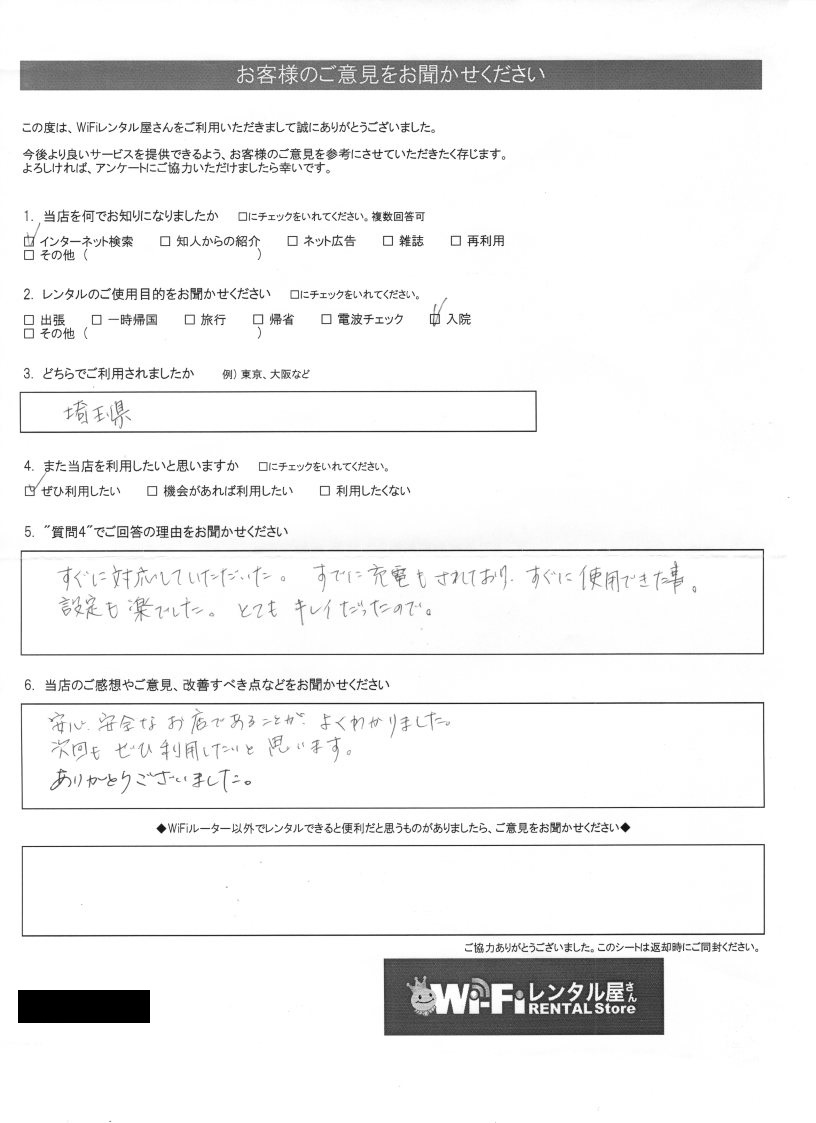 お客様のご意見をお聞かせください
この度は、WiFiレンタル屋さんをご利用いただきまして誠にありがとうございました。
今後より良いサービスを提供できるよう、お客様のご意見を参考にさせていただきたく存じます。
よろしければ、アンケートにご協力いただけましたら幸いです。
1. 当店を何でお知りになりましたか □にチェックをいれてください。複数回答可
☑ インターネット検索 □ 知人からの紹介 □ ネット広告 □ 雑誌 □ 再利用
□ その他 ( )
2. レンタルのご使用目的をお聞かせください □にチェックをいれてください。
□ 出張 □ 一時帰国 □ 旅行 □ 帰省 □ 電波チェック ☑ 入院
□ その他 ( )
3. どちらでご利用されましたか 例) 東京、大阪など
埼玉県
4. また当店を利用したいと思いますか □にチェックをいれてください。
☑ ぜひ利用したい □ 機会があれば利用したい □ 利用したくない
5. "質問4"でご回答の理由をお聞かせください
すぐに対応していただいた。 すでに充電もされており、すぐに使用できた事。
設定も楽でした。 とてもキレイだったので。
6. 当店のご感想やご意見、改善すべき点などをお聞かせください
安心、安全なお店であることが、よくわかりました。
次回もぜひ利用したいと思います。
ありがとうございました。
◆WiFiルーター以外でレンタルできると便利だと思うものがありましたら、ご意見をお聞かせください◆
ご協力ありがとうございました。このシートは返却時にご同封ください。
Wi-Fiレンタル屋さん
RENTAL Store